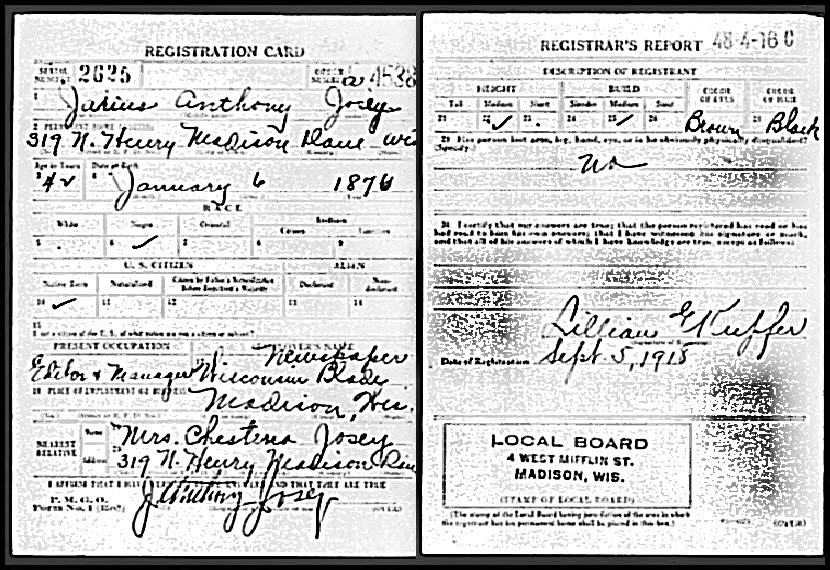 REGISTRATION CARD
SERIAL NUMBER 2625
ORDER NUMBER a 4538
1 Julius Anthony Josey
319 N. Henry Madison Dane Wis
Age in Years
Date of Birth
42 January 6 1876
RACE
White
Negro
Oriental
Indian
Citizen
5 6 ✓ 7 8 9
U. S. CITIZEN
ALIEN
Native Born
Naturalized
Citizen by Father's Naturalization Before Registrant's Majority
Declarant
Non-declarant
10 ✓ 11 12 13 14
15
If not a citizen of the U. S., of what nation are you a citizen or subject?
PRESENT OCCUPATION
EMPLOYER'S NAME
Newspaper
Editor & Manager Wisconsin Blade
18 PLACE OF EMPLOYMENT OR BUSINESS
Madison, Wis.
NEAREST RELATIVE
Name Mrs. Chestena Josey
Address 319 N. Henry Madison Dane
I AFFIRM THAT I HAVE VERIFIED ABOVE ANSWERS AND THAT THEY ARE TRUE
P. M. G. O.
Form No. 1 (Red)
J Anthony Josey
REGISTRAR'S REPORT 48-4-16 C
DESCRIPTION OF REGISTRANT
HEIGHT
BUILD
COLOR OF EYES
COLOR OF HAIR
Tall Medium Short Slender Medium Stout
21 22 ✓ 23 24 25 ✓ 26 Brown 28 Black
29 Has person lost arm, leg, hand, eye, or is he obviously physically disqualified?
(Specify.)
No
30 I certify that my answers are true; that the person registered has read or has
had read to him his own answers; that I have witnessed his signature or mark,
and that all of his answers of which I have knowledge are true, except as follows:
Lillian E Kupfer
Date of Registration Sept. 5, 1918
LOCAL BOARD
4 WEST MIFFLIN ST.
MADISON, WIS.
(STAMP OF LOCAL BOARD)
(The stamp of the Local Board having jurisdiction of the area in which
the registrant has his permanent home shall be placed in this box.)
(OVER)